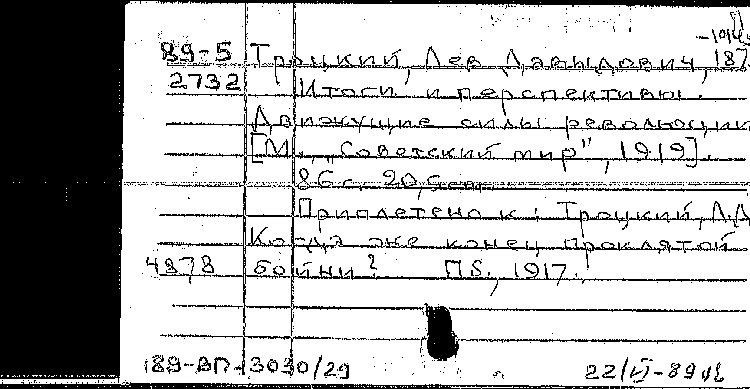 89-5 Троцкий, Лев Давыдович, 187
2732 Итоги и перспективы.
Движущие силы революции
[М., "Советский мир", 1919].
86 с. 20,5 см.
Приплетено к: Троцкий, Л.Д.
Когда же конец проклятой
4878 бойни? Пб., 1917.
189-ВП-3030/29 22/VI-89